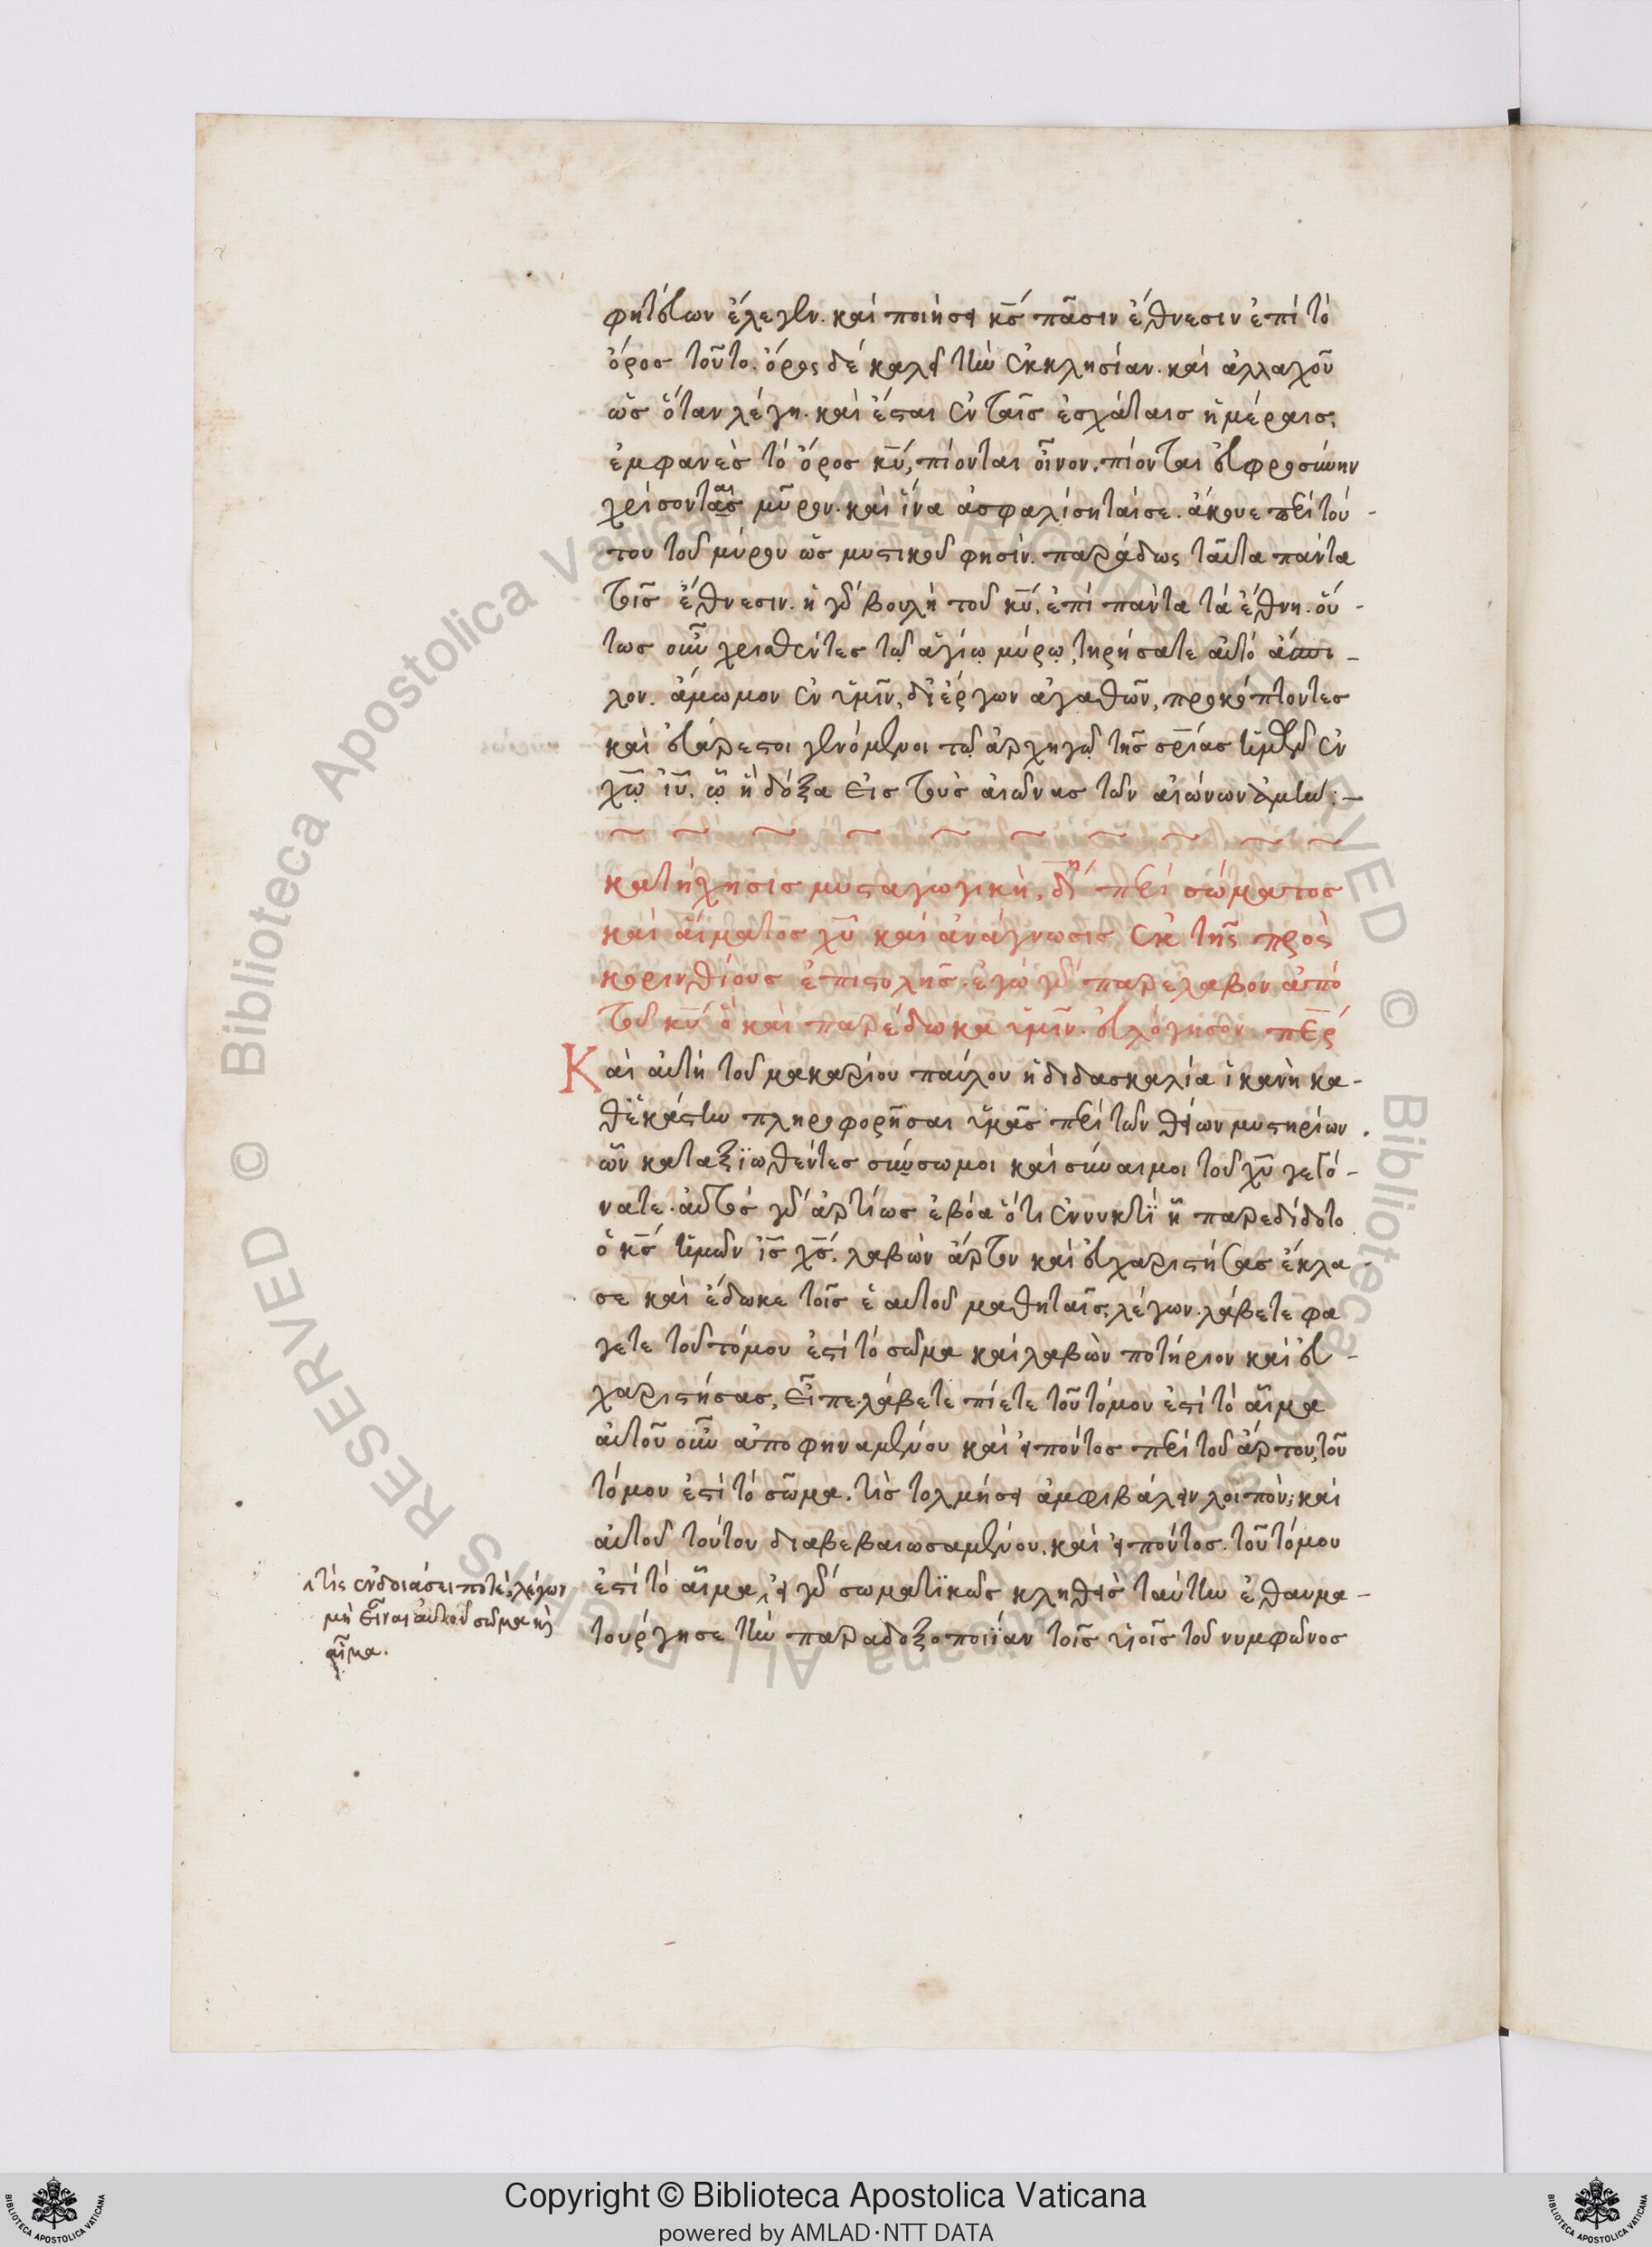 φητεύων ἔλεγεν. καὶ ποιήσει κς πᾶσιν ἔθνεσιν ἐπὶ τὸ
ὄρος τοῦτο. ὄρος δὲ καλεῖ τὴν ἐκκλησίαν. καὶ ἀλλαχοῦ
ὡς ὅταν λέγη. καὶ ἔσται ἐν ταῖς ἐσχάταις ἡμέραις,
ἐμφανὲς τὸ ὄρος κυ, πίονται οἶνον, πίονται εὐφροσύνην
χρίσονται μῦρον. καὶ ἵνα ἀσφαλίσηταί σε. ἄκουε περὶ τού-
του τοῦ μύρου ὡς μυστικοῦ φησίν. παράδως ταῦτα πάντα
τοῖς ἔθνεσιν. ἡ γὰρ βουλὴ τοῦ κυ, ἐπὶ πάντα τὰ ἔθνη. οὕ-
τως οὖν χρισθέντες τῷ ἁγίῳ μύρῳ, τηρήσατε αὐτὸ ἄσπι-
λον. ἄμωμον ἐν ὑμῖν, δι' ἔργων ἀγαθῶν, προκόπτοντες
καὶ εὐάρεστοι γενόμενοι τῷ ἀρχηγῷ τῆς σρίας ἡμῶν ἐν
χῷ ιυ. ᾧ ἡ δόξα εἰς τοὺς αἰῶνας τῶν αἰώνων ἀμήν:—
κατήχησις μυσταγωγικὴ, δη περὶ σώματος
καὶ αἵματος χυ καὶ ἀνάγνωσις ἐκ τῆς πρὸς
κορινθίους ἐπιστολῆς. ἐγὼ γὰρ παρέλαβον ἀπὸ
τοῦ κυ ὃ καὶ παρέδωκα ὑμῖν. εὐλόγησον περ
Καὶ αὐτὴ τοῦ μακαρίου παύλου ἡ διδασκαλία ἱκανὴ κα-
θεκάστην πληροφορῆσαι ὑμᾶς περὶ τῶν θείων μυστηρίων.
ὧν καταξϊωθέντες σύσσωμοι καὶ σύναιμοι τοῦ χυ γεγό-
νατε. αὐτὸς γὰρ ἀρτίως ἐβόα ὅτι ἐν νυκτῒ ᾗ παρεδίδοτο
ὁ κς ἡμῶν ις χς. λαβὼν ἄρτον καὶ εὐχαριστήσας ἔκλα-
σε καὶ ἔδωκε τοῖς ἑαυτοῦ μαθηταῖς, λέγων. λάβετε φά
γετε τοῦτό μου ἐστὶ τὸ σῶμα καὶ λαβὼν ποτήριον καὶ εὐ-
χαριστήσας, εἶπε. λάβετε πίετε τοῦτό μου ἐστὶ τὸ αἷμα
αὐτοῦ οὖν ἀποφηναμένου καὶ εἰπόντος περὶ τοῦ ἄρτου, τοῦ
τό μου ἐστὶ τὸ σῶμα. τὶς τολμήσει ἀμφιβάλειν λοιπὸν; καὶ
αὐτοῦ τούτου διαβεβαιωσαμένου. καὶ εἰπόντος. τοῦτό μου
ἐστὶ τὸ αἷμα, εἰ γὰρ σωματϊκῶς κληθεὶς ταύτην ἐθαυμα-
τούργησε τὴν παραδοξοποιΐαν τοῖς υἱοῖς τοῦ νυμφῶνος
τίς ἐνδοιάσει ποτὲ, λέγων
μὴ εἶναι αὐτοῦ σῶμα κὶ
αἷμα.
Copyright © Biblioteca Apostolica Vaticana
powered by AMLAD·NTT DATA
© Biblioteca Apostolica Vaticana ALL RIGHTS RESERVED